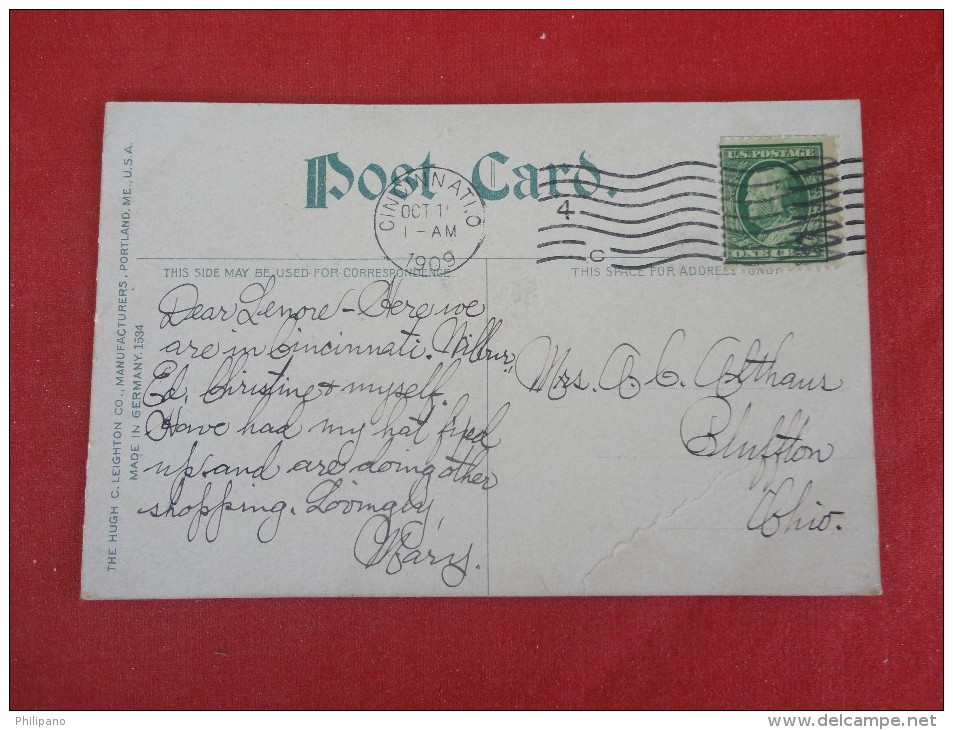 Post Card.
CINCINNATI, O
OCT 1
1 - AM
1909
4
C
U.S. POSTAGE
ONE
THIS SIDE MAY BE USED FOR CORRESPONDENCE
THIS SPACE FOR ADDRESS ONLY
THE HUGH C. LEIGHTON CO., MANUFACTURERS, PORTLAND, ME., U.S.A.
MADE IN GERMANY. 1534
Dear Lenore - Here we
are in Cincinnati. Wilbur,
Ed, Christine + myself.
Have had my hat fixed
up and are doing other
shopping. Lovingly,
Mary.
Mrs. A C. Althaus
Bluffton
Ohio.
Philipano
www.delcampe.net